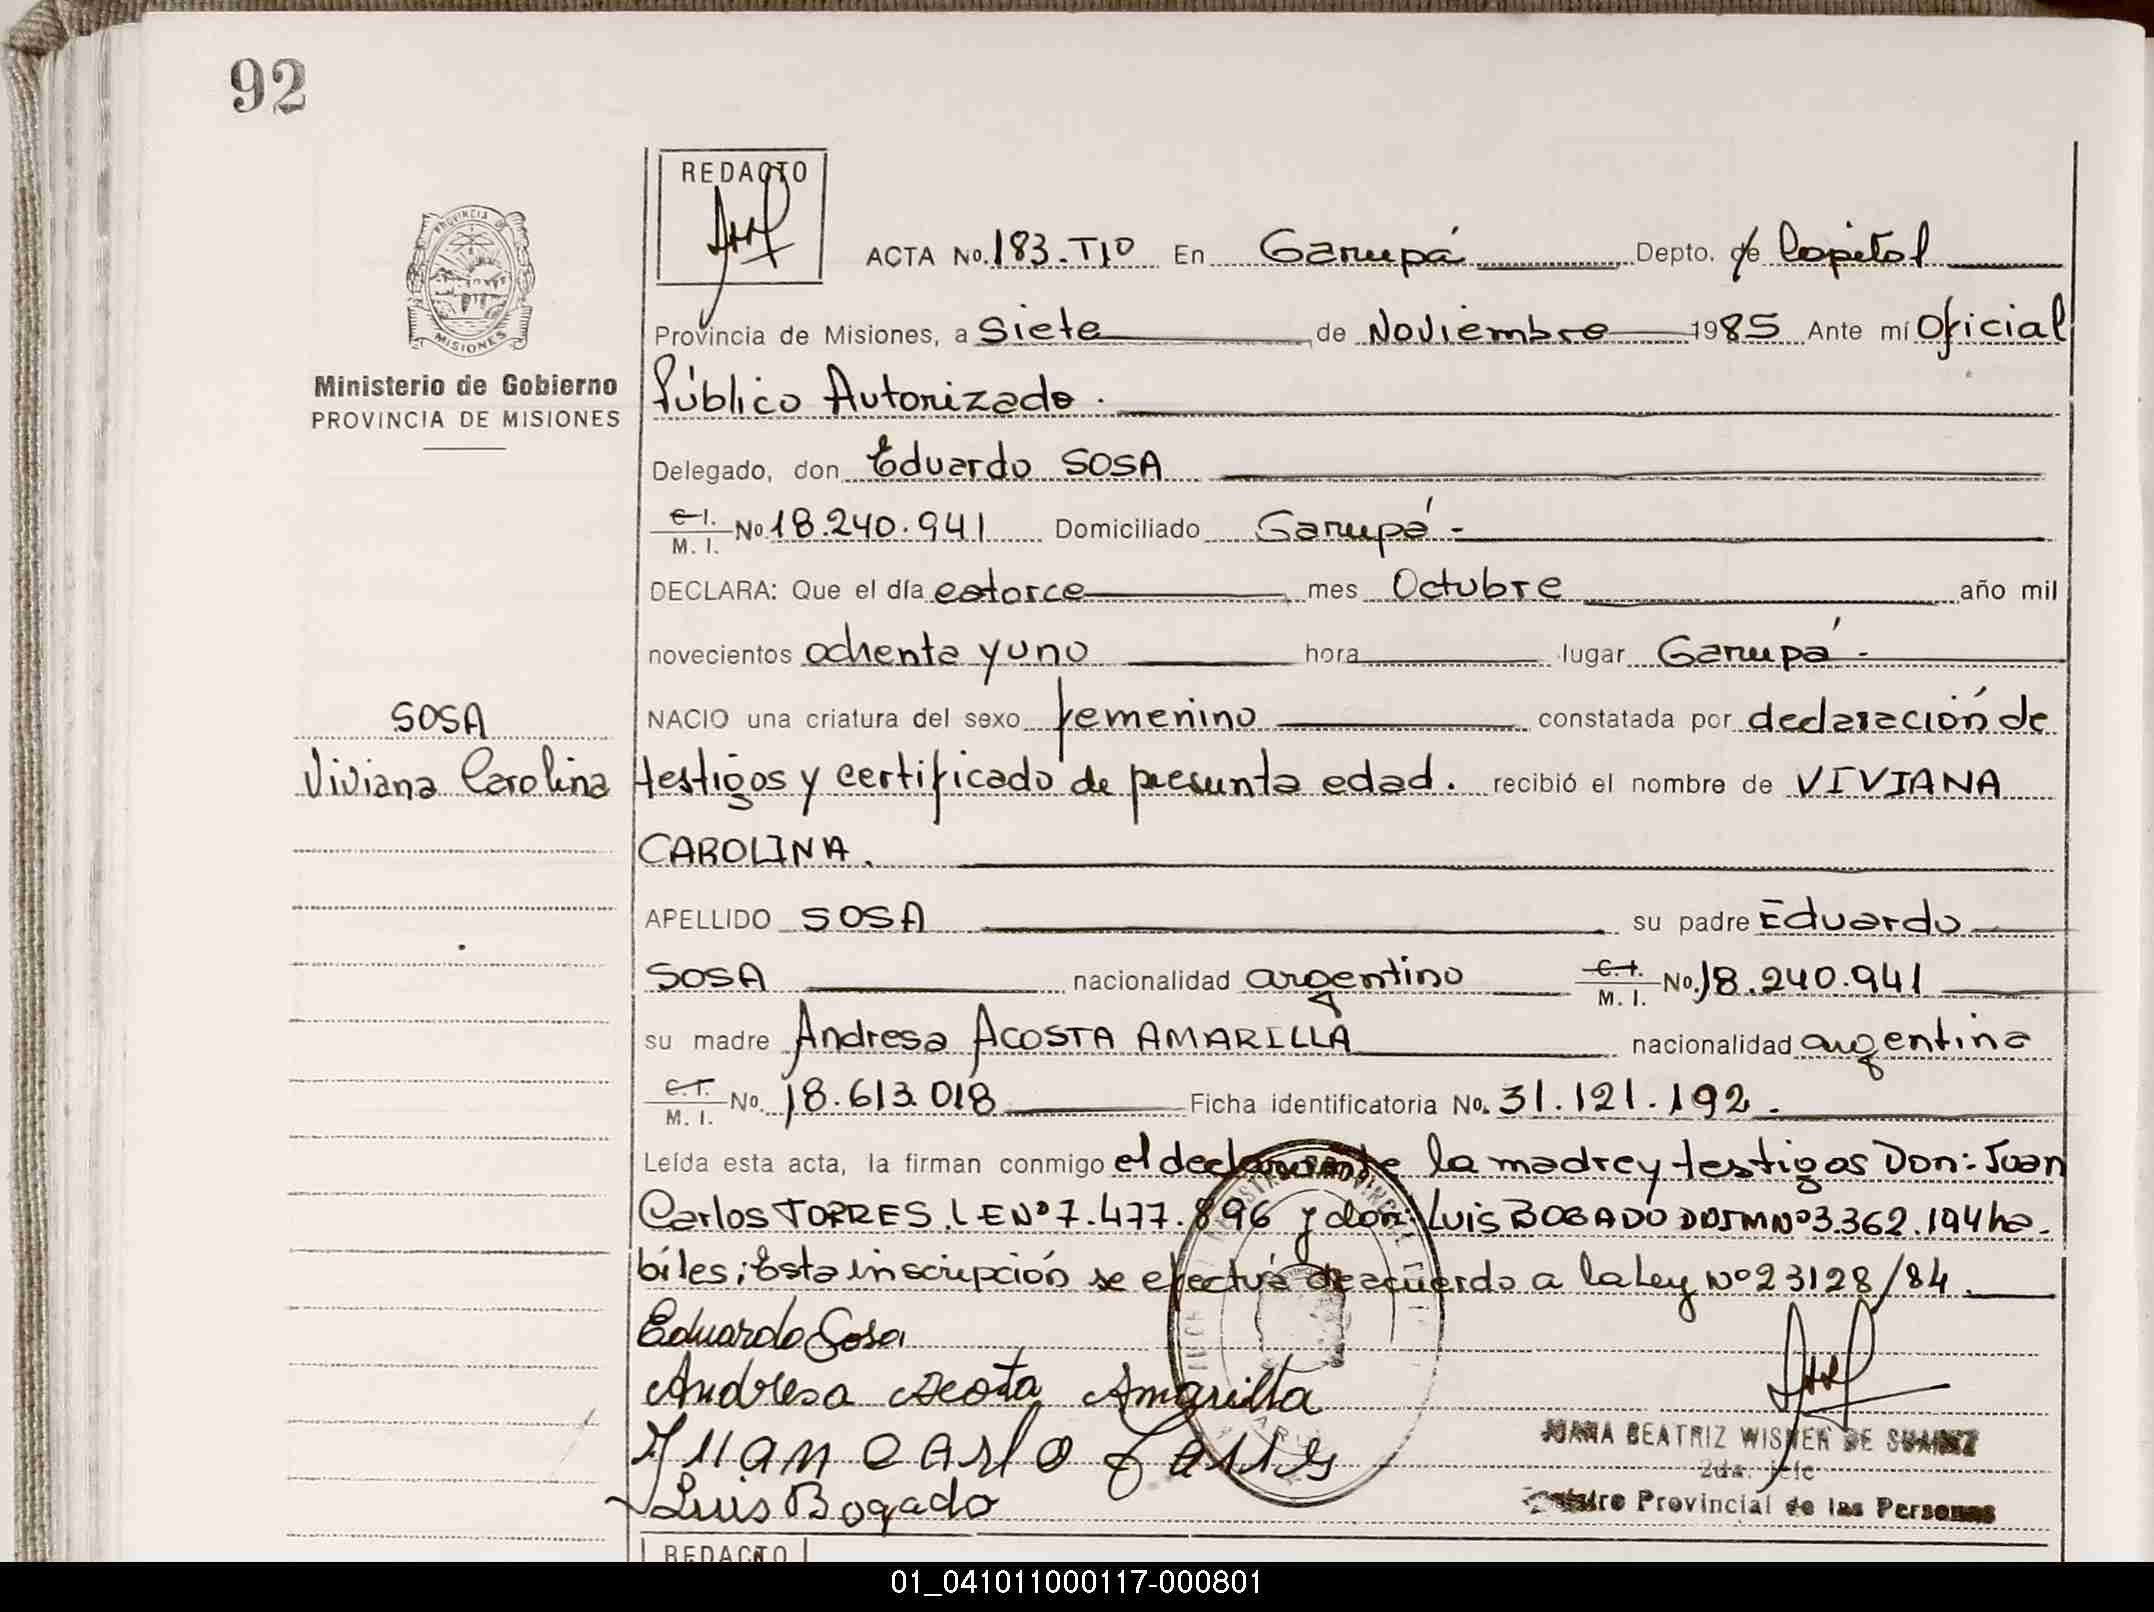 92
REDACTO
ACTA No. 183.Tiº En Garupá Depto. de Capital
PROVINCIA DE
MISIONES
Provincia de Misiones, a Siete de Noviembre 1985 Ante mí Oficial
Ministerio de Gobierno
PROVINCIA DE MISIONES
Público Autorizado.
Delegado, don Eduardo SOSA
C.I.
M. I. No 18.240.941 Domiciliado Garupá-
DECLARA: Que el día catorce mes Octubre año mil
novecientos ochenta y uno hora lugar Garupá-
SOSA
NACIO una criatura del sexo femenino constatada por declaración de
Viviana Carolina
testigos y certificado de presunta edad. recibió el nombre de VIVIANA
CAROLINA.
APELLIDO SOSA su padre Eduardo
SOSA nacionalidad argentino C.I. M. I. No. 18.240.941
su madre Andresa ACOSTA AMARILLA nacionalidad argentina
C.I. M. I. No. 18.613.018 Ficha identificatoria No. 31.121.192.
Leída esta acta, la firman conmigo el declarante la madre y testigos Don: Juan
Carlos TORRES. L E Nº 7.477.896 y don: Luis BOGADO Nº 3.362.194 ha-
biles; Esta inscripción se efectúa de acuerdo a la Ley Nº 23128/84
Eduardo Sosa
Andresa Acosta Amarilla
Juan Carlo Torres
JUANA BEATRIZ WISNER DE SUAREZ
2da. jefe
Luis Bogado
Registro Provincial de las Personas
REDACTO
01_041011000117-000801